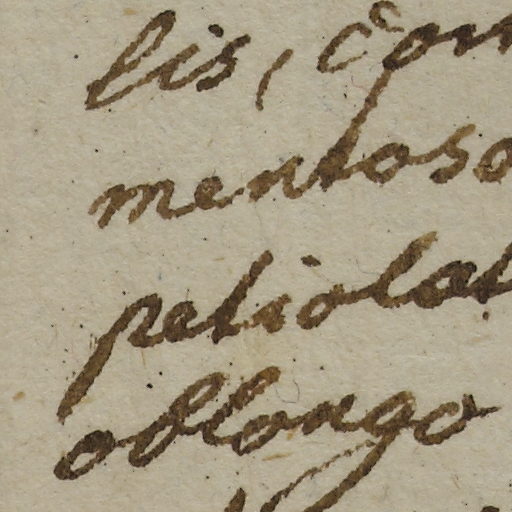 lis, com
mentoso
petiolat
oblongo